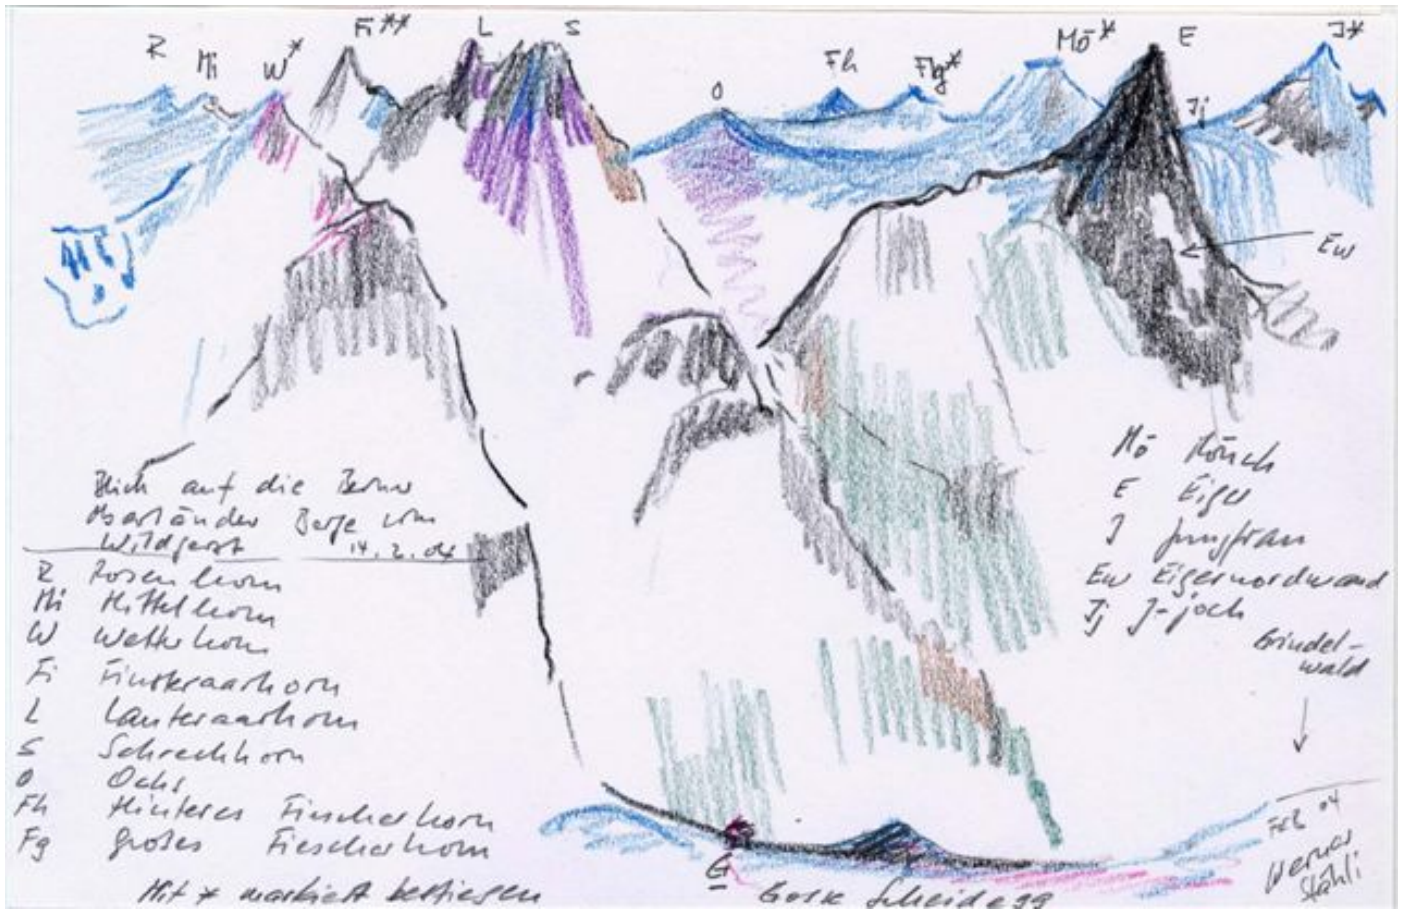 R Mi W* Fi** L S O Fh Fg* Mö* E Jj J*
Ew
Blick auf die Berner
Oberländer Berge vom
Wildgerst 14.2.04
R Rosenhorn
Mi Mittelhorn
W Wetterhorn
Fi Finsteraarhorn
L Lauteraarhorn
S Schreckhorn
O Ochs
Fh Hinteres Fiescherhorn
Fg Großes Fiescherhorn
Mit * markiert bestiegen
Mö Mönch
E Eiger
J Jungfrau
Ew Eigernordwand
Jj J-joch
Grindel-
wald
G
Grosse Scheidegg
Feb 04
Werner
Stähli